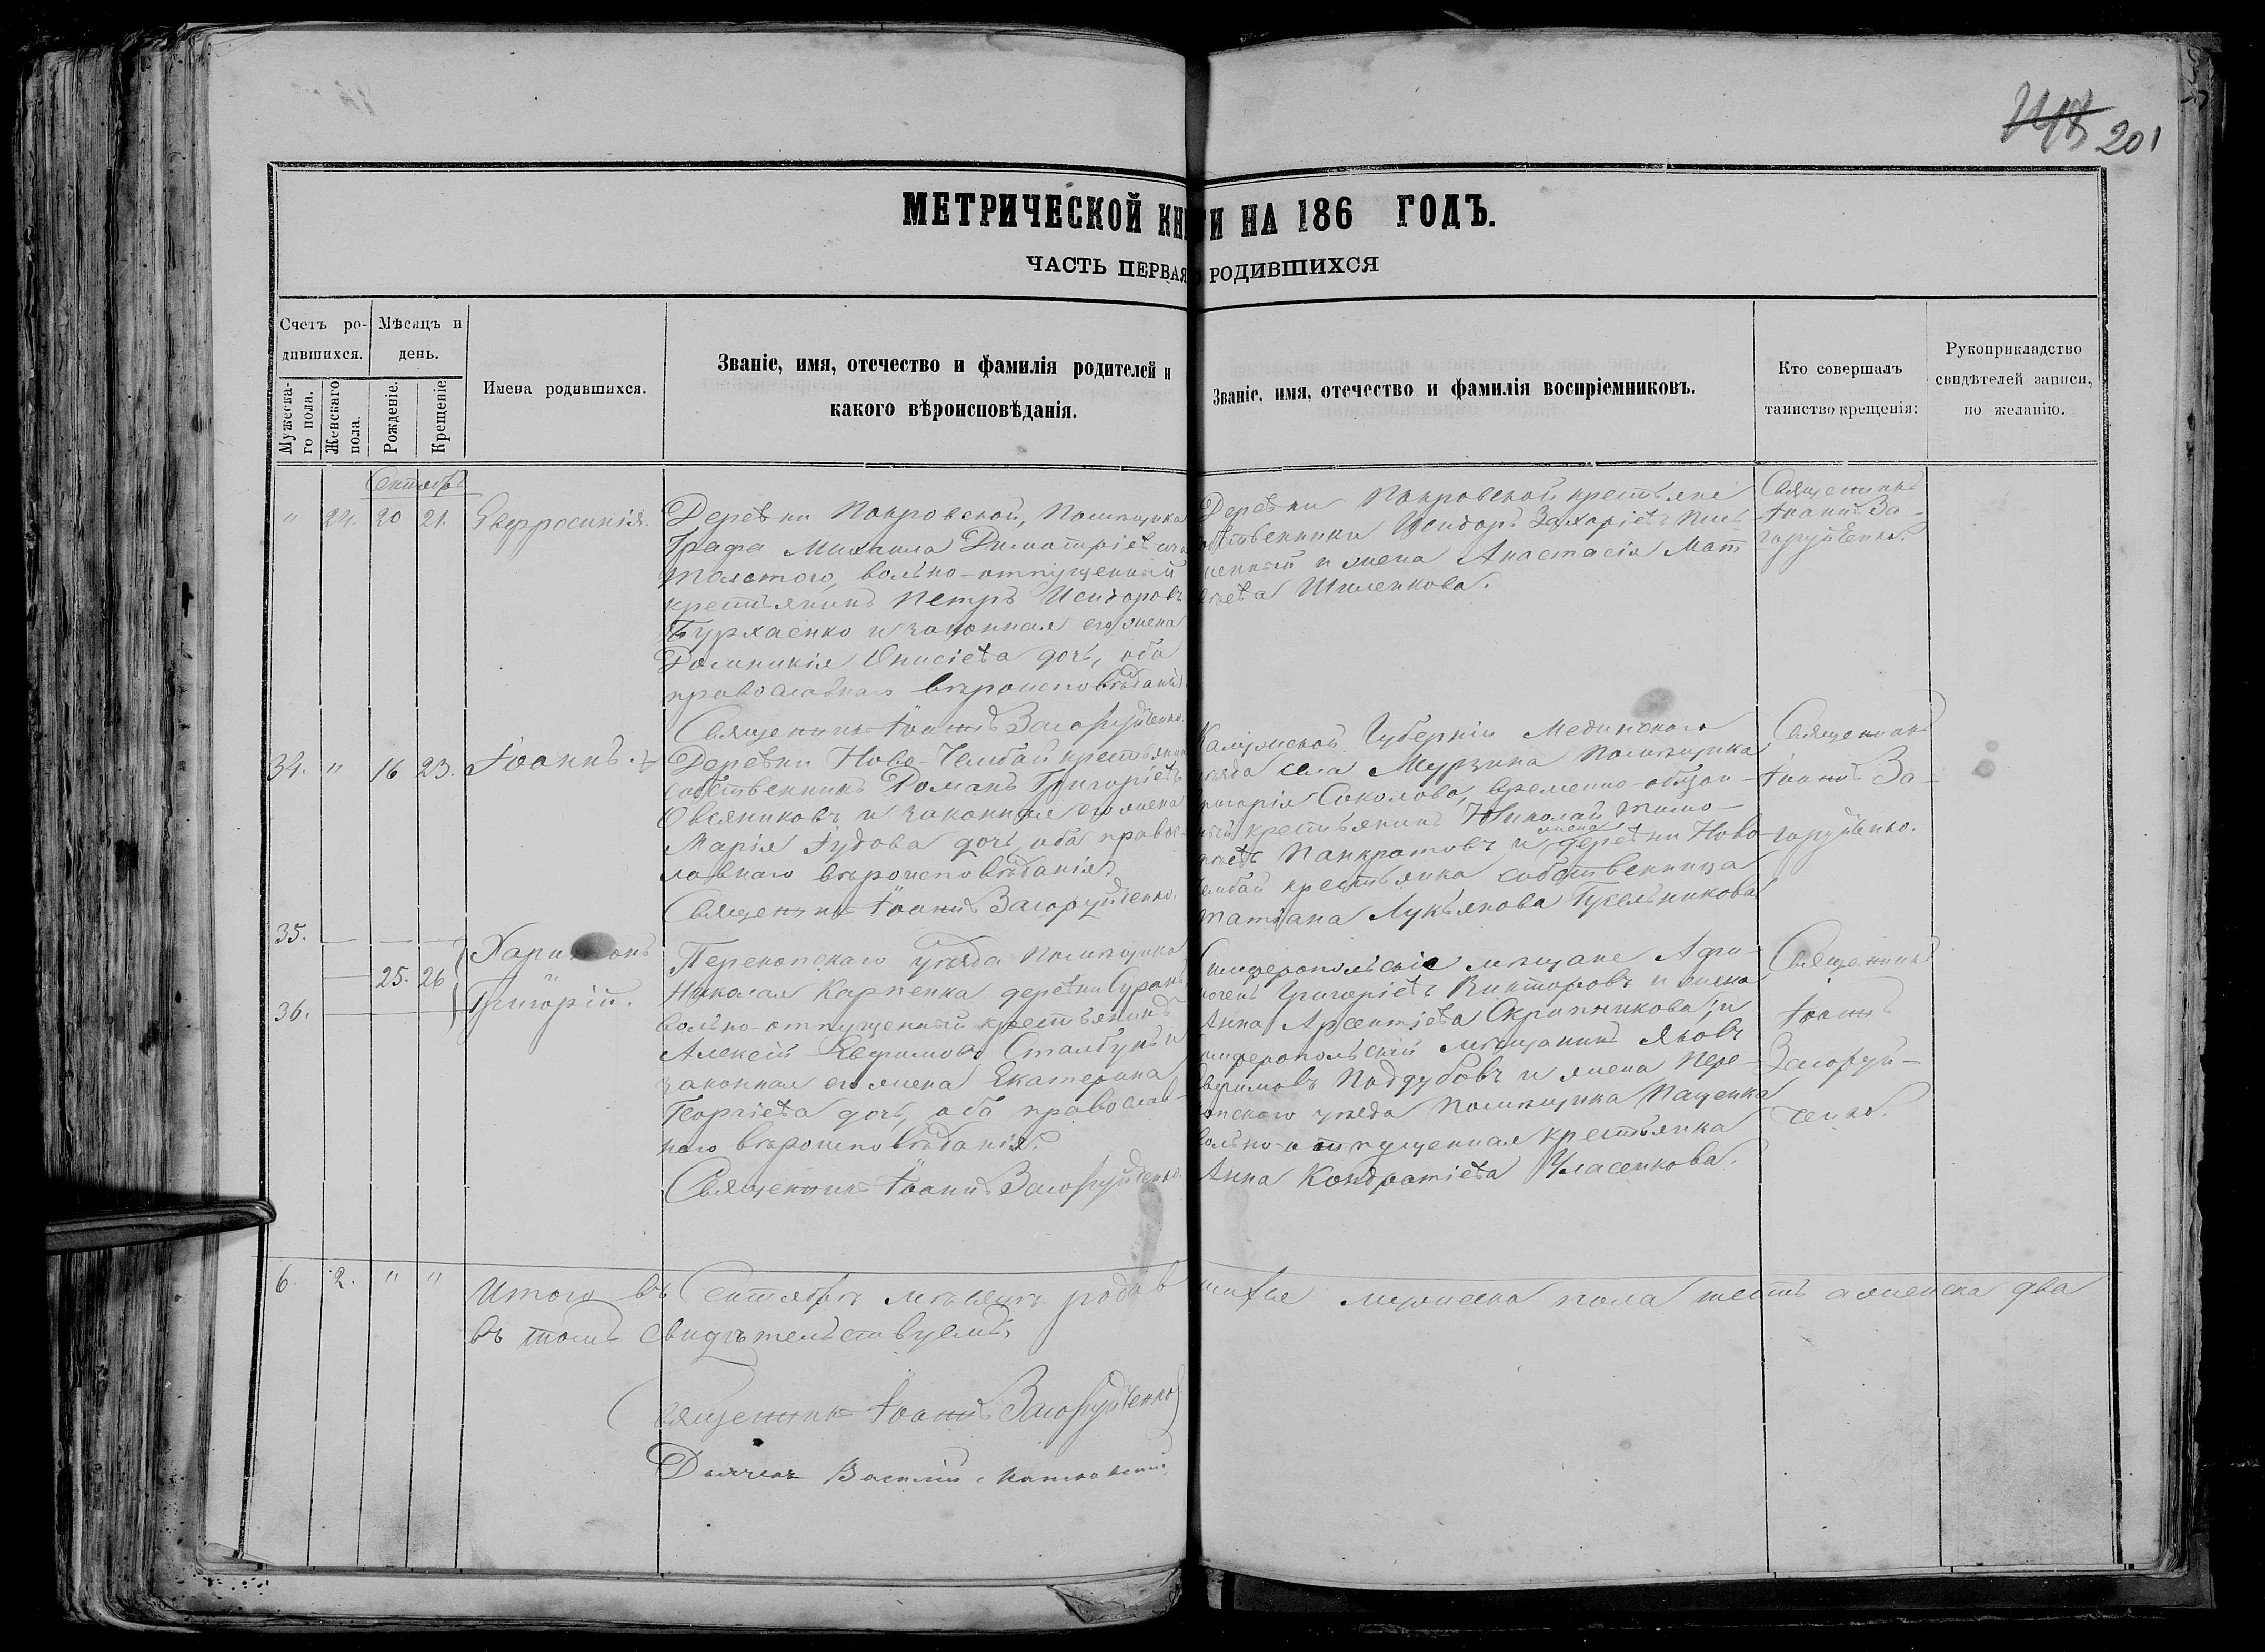 201
МЕТРИЧЕСКОЙ КНИ И НА 186 ГОДЪ.
ЧАСТЬ ПЕРВАЯ РОДИВШИХСЯ
Счетъ ро-
дившихся.
Мужеска-
го пола.
Женскаго
пола.
Мѣсяцъ и
день.
Рожденіе.
Крещеніе
Имена родившихся.
Званіе, имя, отечество и фамилія родителей и
какого вѣроисповѣданія.
Званіе, имя, отечество и фамилія воспріемниковъ.
Кто совершалъ
таинство крещенія:
Рукоприкладство
свидѣтелей записи,
по желанію.
Сентябрь
" 24. 20 21. Евфросинія.
Деревни Покровской, Помѣщика
Графа Михаила Димитріевича
Толстого, вольно-отпущенный
крестьянинъ Петръ Исидоровъ
Бурхаенко и законная его жена
Домникія Онисіева дочь, оба
православнаго вѣроисповѣданія.
Священникъ Іоаннъ Загоруйченко.
Деревни Покровской крестьяне
собственники Исидоръ Захаріевъ
и жена Анастасія Мат
вѣева Шиленкова.
Священникъ
Іоаннъ За-
горуйченко.
34. " 16 23. Іоаннъ.
Деревни Ново-Чембай крестьянинъ
собственникъ Романъ Григоріевъ
Овсяниковъ и законная его жена
Марія Іудова дочь, оба правос-
лавнаго вѣроисповѣданія.
Священникъ Іоаннъ Загоруйченко.
Калужской Губерніи Мединскаго
уѣзда села Мурзина Помѣщика
Григорія Соколова, временно-обязан-
ный крестьянинъ Николай Тимо-
ѳеевъ Панкратовъ и жена деревни Ново-
Чембай крестьянка собственница
Татіана Лукьянова Гусельникова
Священникъ
Іоаннъ За-
горуйченко.
35.
Харитонъ
25. 26
и
36.
Григорій.
Перекопскаго уѣзда Помѣщика
Николая Карпенка деревни
вольно-отпущенный крестьянинъ
Алексій Евфимовъ Сталбунъ и
законная его жена Екатерина
Георгіева дочь, оба православ-
наго вѣроисповѣданія.
Священникъ Іоаннъ Загоруйченко.
Симферопольскіе мѣщане Афи-
ногенъ Григоріевъ Викторовъ и жена
Анна Арсентіева Скрипникова; и
Симферопольскій мѣщанинъ Яковъ
Евфимовъ Поддубовъ и жена Пере-
копскаго уѣзда Помѣщика Паценка
вольно-отпущенная крестьянка
Анна Кондратіева Уласенкова.
Священникъ
Іоаннъ
Загоруй-
ченко.
6. 2. " " Итого въ Сентябрѣ мѣсяцѣ родив шихся мужеска пола шесть а женска два
въ томъ свидѣтельствуемъ:
Священникъ Іоаннъ Загоруйченко
Дьячекъ Василій